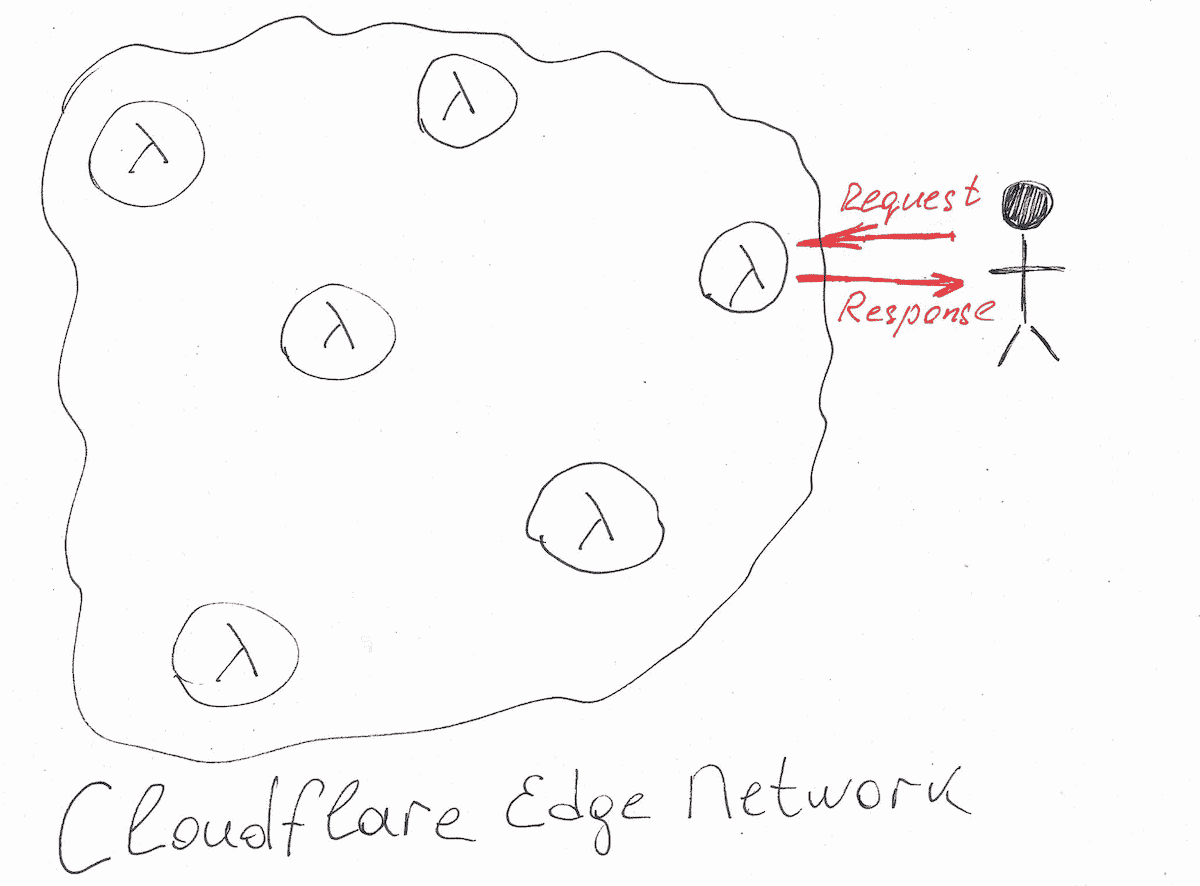 λ
λ
Request
λ
Response
λ
λ
λ
Cloudflare Edge Network